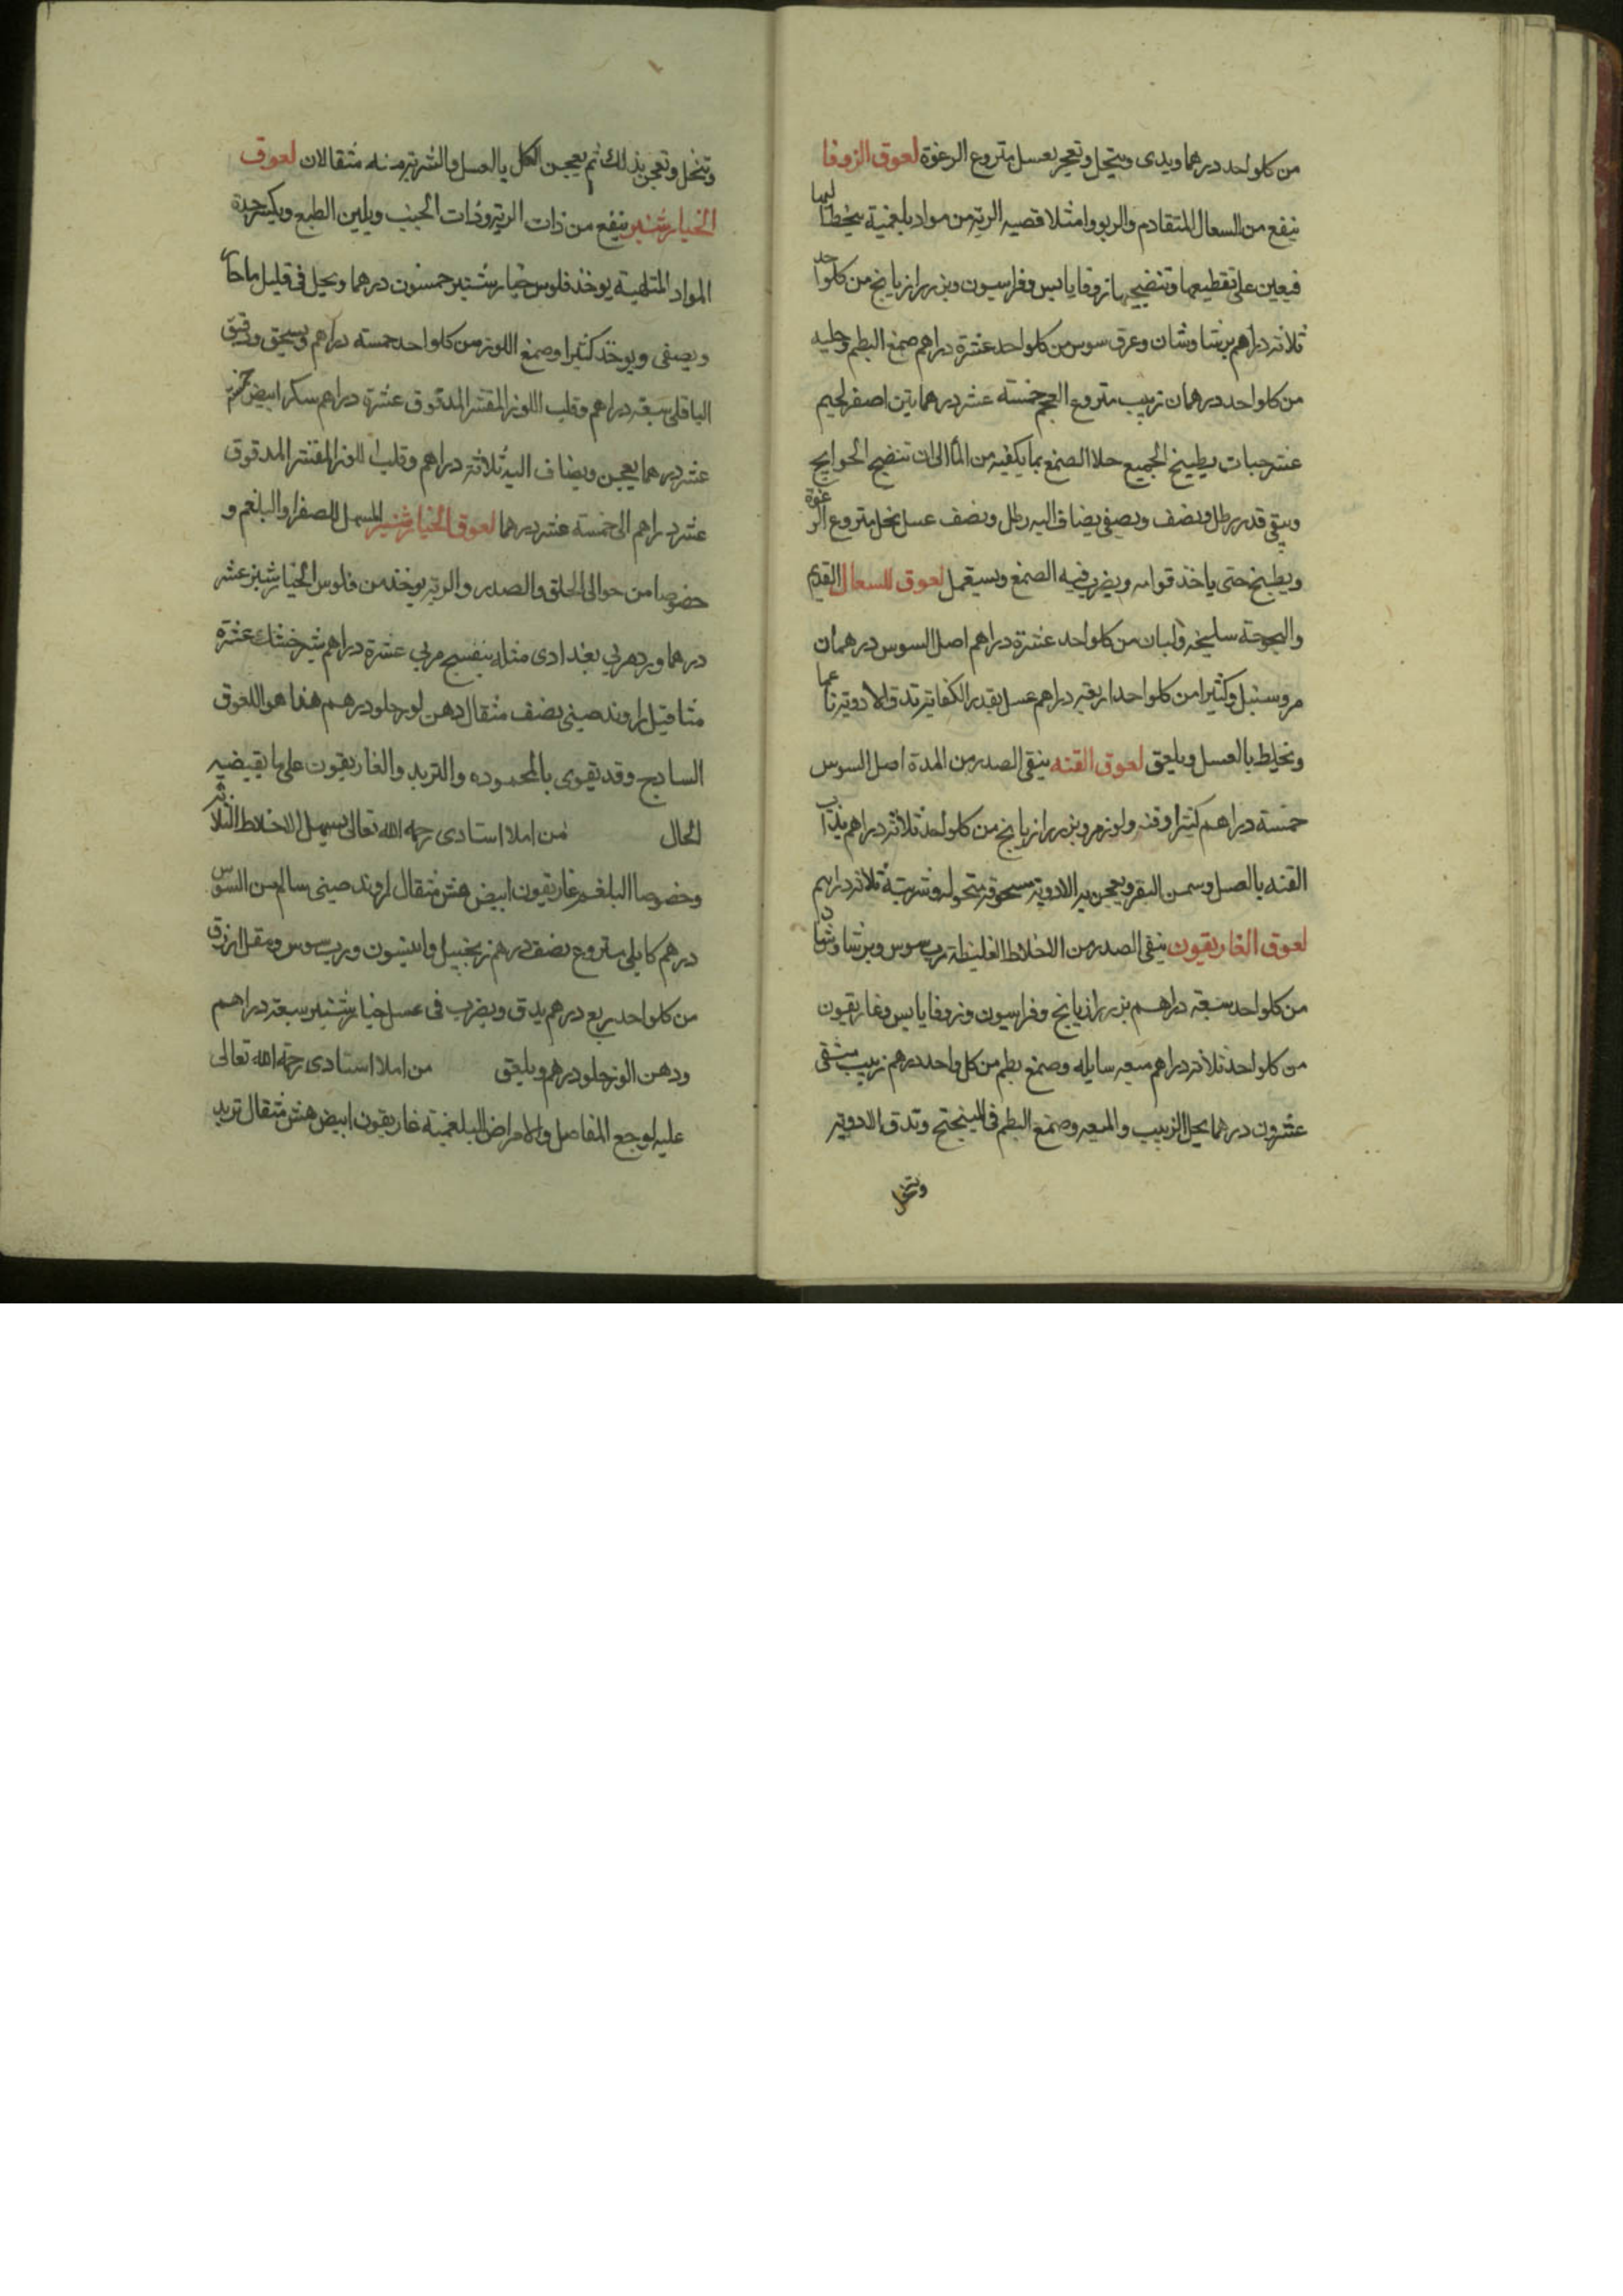 من كلواحد درهما ويدق وينخل وتعجن بعسل متروع الرغوة لعوق الزوفا
ينفع من السعال المتقادم والربو وامتلا قصبه الريه من مواد بلغمية يخطالها
فيعين على تقطيعها وتنضيجها زوفا يابس وفراسيون وبزر رازيانج من كلواحد
ثلاثه دراهم برشاوشان وعرق سوس من كلواحد عشرة دراهم صمغ البطم وحلبه
من كلواحد درهمان زبيب متروع العجم خمسته عشر درهما تين اصفر لحيم
عشر حبات يطبخ الجميع خلا الصمغ بما يكفيه من الماء الى ان تنضج الحوايج
ويبقى قدر رطل ونصف ويصفى يضاف اليه رطل ونصف عسل نحل متروع الرغوة
ويطبخ حتى ياخذ قوامه ويضرب فيه الصمغ ويستعمل لعوق للسعال القديم
والبحوحة سليخه ولبان من كلواحد عشرة دراهم اصل السوس درهمان
مر وسنبل وكثيرا من كلواحد اربعه دراهم عسل بقدر الكفايه تدق الادويه ناعما
وتخلط بالعسل ويلعق لعوق القنه ينقى الصدر من المدة اصل السوس
خمسة دراهم كثيرا وقنه ولوز مر وبزر رازيانج من كلواحد ثلاثه دراهم يذاب
القنه بالعسل وسمن البقر ويعجن به الادويه مسحوقه منخوله وشربته ثلاثه دراهم
لعوق الغاريقون ينقى الصدر من الاخلاط الغليظة رب سوس وبرشاوشان
من كلواحد سبعة دراهم بزر رازيانج وفراسيون وزوفا يابس وغاريقون
من كلواحد ثلاثه دراهم ميعه سايله وصمغ بطم من كل واحد درهم زبيب منقى
عشرون درهما يحل الزبيب والميعه وصمغ البطم فى الميبختج وتدق الادويه
وتنخل
وتنخل وتعجن بذلك ثم يعجن الكل بالعسل والشربه منه مثقالان لعوق
الخيارشنبر ينفع من ذات الريه وذات الجنب ويلين الطبع ويكسر حدة
المواد الملتهبة يوخذ فلوس خيارشنبر خمسون درهما ويحل فى قليل ما حار
ويصفى ويوخذ كثيرا وصمغ اللوز من كلواحد خمسة دراهم ويسحق ودقيق
الباقلى سبعه دراهم وقلب اللوز المقشر المدقوق عشرة دراهم سكر ابيض خمسه
عشر درهما يعجن ويضاف اليه ثلاثة دراهم وقلب اللوز المقشر المدقوق
عشر دراهم الى خمسة عشر درهما لعوق الخيارشنبر المسهل للصفرا والبلغم و
خصوصا من حوالى الحلق والصدر والريه يوخذ من فلوس الخيارشنبر عشر
درهما ورد مربى بغدادى مثله بنفسج مربى عشرة دراهم شيرخشك عشرة
مثاقيل راوند صينى نصف مثقال دهن لوز حلو درهم هذا هو اللعوق
الساذج وقد يقوى بالمحموده والتربد والغاريقون على ما يقتضيه
الحال من املا استادى رحمه الله تعالى يسهل الاخلاط الثلاثه
وخصوصا البلغم غاريقون ابيض هش مثقال راوند صينى سالم من السوس
درهم كابلى متروع نصف درهم زنجبيل وانيسون ورب سوس ومقل ازرق
من كلواحد ربع درهم يدق ويضرب فى عسل خيارشنبر سبعه دراهم
ودهن الوز حلو درهم ويلعق من املا استادى رحمة الله تعالى
عليه لوجع المفاصل والامراض البلغمية غاريقون ابيض هش مثقال تربد